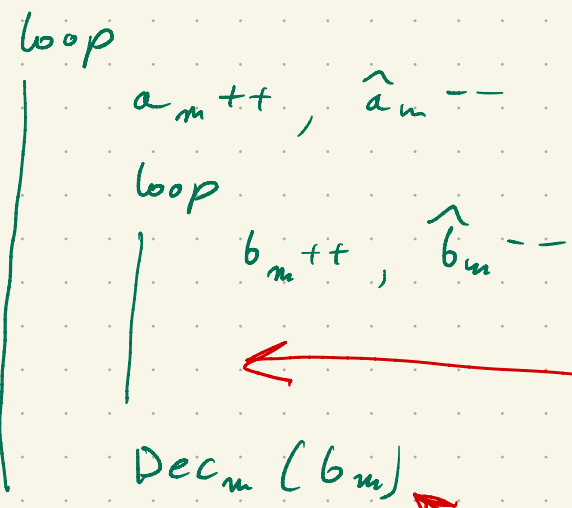 loop
aₘ++, âₘ--
loop
bₘ++, b̂ₘ--
Decₘ(bₘ)